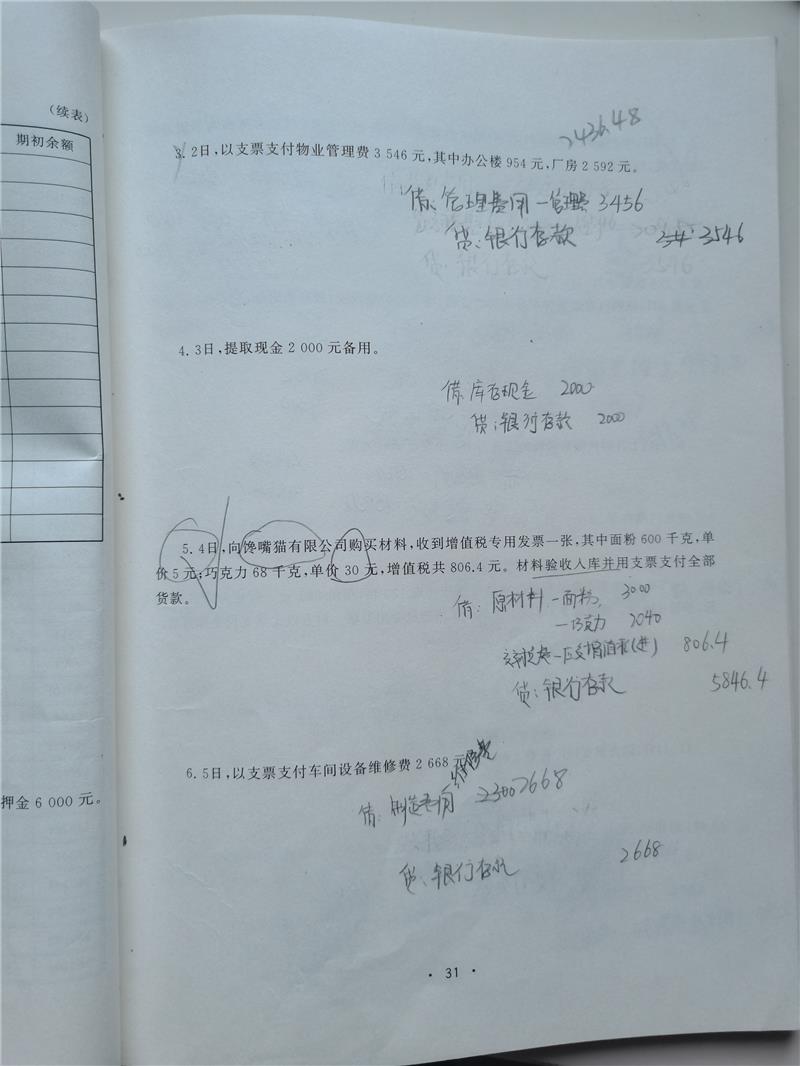 （续表）
期初余额
押金 6 000 元。
2436.48
3. 2日，以支票支付物业管理费 3 546 元，其中办公楼 954 元，厂房 2 592 元。
借：管理费用－管理费 3456
贷：银行存款 3546
4. 3日，提取现金 2 000 元备用。
借：库存现金 2000
贷：银行存款 2000
5. 4日，向馋嘴猫有限公司购买材料，收到增值税专用发票一张，其中面粉 600 千克，单
价 5 元；巧克力 68 千克，单价 30 元，增值税共 806.4 元。材料验收入库并用支票支付全部
货款。
借：原材料－面粉 3000
－巧克力 2040
806.4
贷：银行存款 5846.4
6. 5日，以支票支付车间设备维修费 2 668 元。
维修费
借：制造费用 2300 2668
贷：银行存款 2668
· 31 ·